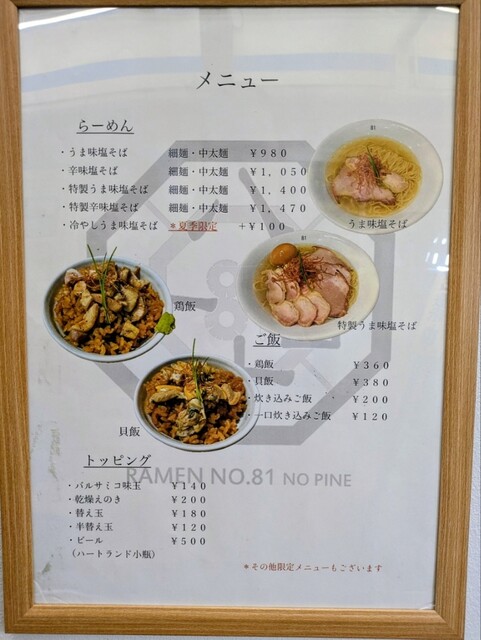 メニュー
らーめん
・うま味塩そば 細麺・中太麺 ￥980
・辛味塩そば 細麺・中太麺 ￥1,050
・特製うま味塩そば 細麺・中太麺 ￥1,400
・特製辛味塩そば 細麺・中太麺 ￥1,470
・冷やしうま味塩そば ＊夏季限定 +￥100
81
うま味塩そば
81
特製うま味塩そば
鶏飯
貝飯
ご飯
・鶏飯 ￥360
・貝飯 ￥380
・炊き込みご飯 ￥200
・一口炊き込みご飯 ￥120
トッピング
・バルサミコ味玉 ￥140
・乾燥えのき ￥200
・替え玉 ￥180
・半替え玉 ￥120
・ビール ￥500
（ハートランド小瓶）
RAMEN NO.81 NO PINE
＊その他限定メニューもございます